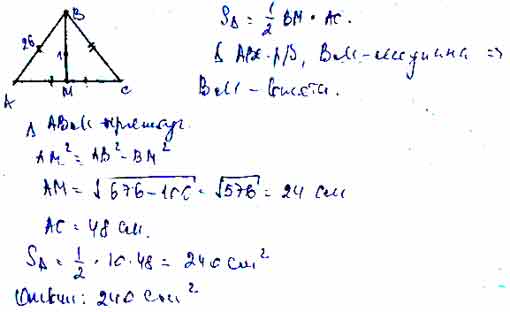 B
26
10
A
M
C
S_Δ = 1/2 BM · AC.
Δ ABC - р/б, BM - медиана ⇒
BM - высота.
Δ ABM - прямоуг.
AM² = AB² - BM²
AM = √676-100 = √576 = 24 см
AC = 48 см.
S_Δ = 1/2 · 10 · 48 = 240 см²
Ответ: 240 см²